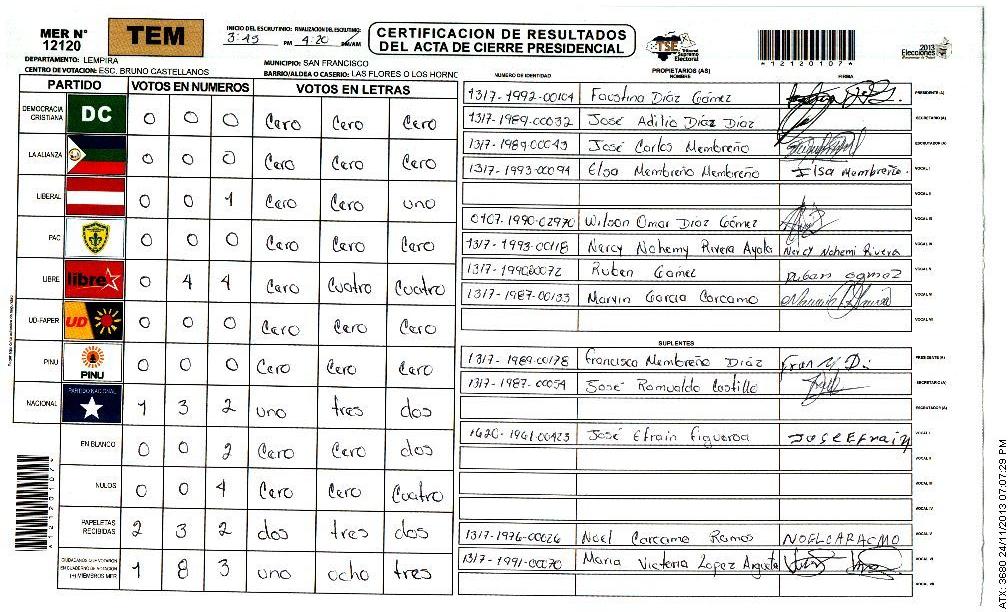 MER N°
12120
TEM
INICIO DEL ESCRUTINIO: FINALIZACIÓN DEL ESCRUTINIO:
3:45 PM 4:20 PM/AM
CERTIFICACION DE RESULTADOS
DEL ACTA DE CIERRE PRESIDENCIAL
TSE Tribunal Supremo Electoral
*12120107*
2013
Elecciones
DEPARTAMENTO: LEMPIRA
MUNICIPIO: SAN FRANCISCO
CENTRO DE VOTACION: ESC. BRUNO CASTELLANOS
BARRIO/ALDEA O CASERIO: LAS FLORES O LOS HORNC
PARTIDO VOTOS EN NUMEROS VOTOS EN LETRAS
DEMOCRACIA CRISTIANA DC 0 0 0 Cero Cero Cero
LA ALIANZA 0 0 0 Cero Cero Cero
LIBERAL 0 0 1 Cero Cero uno
PAC 0 0 0 Cero Cero Cero
LIBRE libre 0 4 4 Cero Cuatro Cuatro
UD-FAPER UD 0 0 0 Cero Cero Cero
PINU PINU 0 0 0 Cero Cero Cero
NACIONAL PARTIDO NACIONAL 1 3 2 uno tres dos
EN BLANCO 0 0 2 Cero Cero dos
NULOS 0 0 4 Cero Cero Cuatro
PAPELETAS RECIBIDAS 2 3 2 dos tres dos
CIUDADANOS QUE VOTARON EN CUADERNO DE VOTACION (+) MIEMBROS MER 1 8 3 uno ocho tres
NUMERO DE IDENTIDAD PROPIETARIOS (AS) NOMBRE FIRMA
1317-1992-00104 Faustino Díaz Gómez PRESIDENTE (A)
1317-1989-00032 José Adilio Díaz Díaz SECRETARIO (A)
1317-1989-00049 José Carlos Membreño ESCRUTADOR (A)
1317-1993-00094 Elsa Membreño Membreño Elsa Membreño. VOCAL I
VOCAL II
0407-1990-02970 Wilson Omar Díaz Gómez VOCAL III
1317-1993-00118 Nercy Nohemy Rivera Ayala Nercy Nohemi Rivera VOCAL IV
1317-19900072 Ruben Gomez ruben gomez VOCAL V
1317-1987-00133 Marvin Garcia Carcamo VOCAL VI
VOCAL VII
SUPLENTES
1317-1989-00178 Francisco Membreño Díaz Fran M. D. PRESIDENTE (A)
1317-1987-00054 José Romualdo Castillo SECRETARIO (A)
ESCRUTADOR (A)
1620-1961-00423 José Efrain Figueroa JOSE EFrain VOCAL I
VOCAL II
VOCAL III
VOCAL IV
1317-1976-00026 Noel Carcamo Ramos NOELCARACMO VOCAL V
1317-1991-00070 Maria Victoria Lopez Argueta VOCAL VI
VOCAL VII
*12120107*
ATX: 3680 24/11/2013 07:07:29 PM